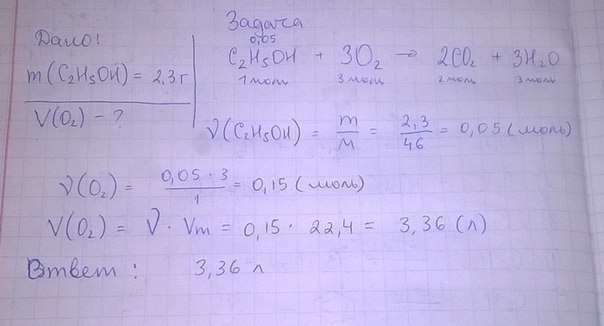 Задача
Дано:
m(C₂H₅OH) = 2,3 г
V(O₂) - ?
0,05
C₂H₅OH + 3O₂ → 2CO₂ + 3H₂O
1 моль 3 моль 2 моль 3 моль
ν(C₂H₅OH) = m/M = 2,3/46 = 0,05 (моль)
ν(O₂) = 0,05 · 3/1 = 0,15 (моль)
V(O₂) = ν · Vm = 0,15 · 22,4 = 3,36 (л)
Ответ: 3,36 л